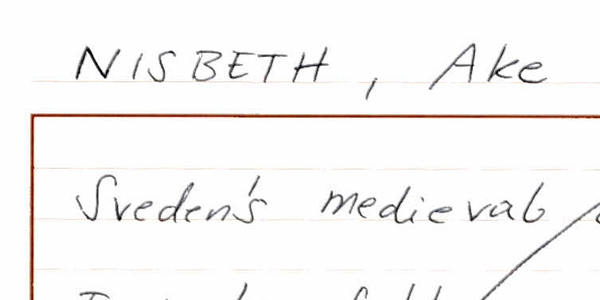 NISBETH, Ake
Sveden's medieval